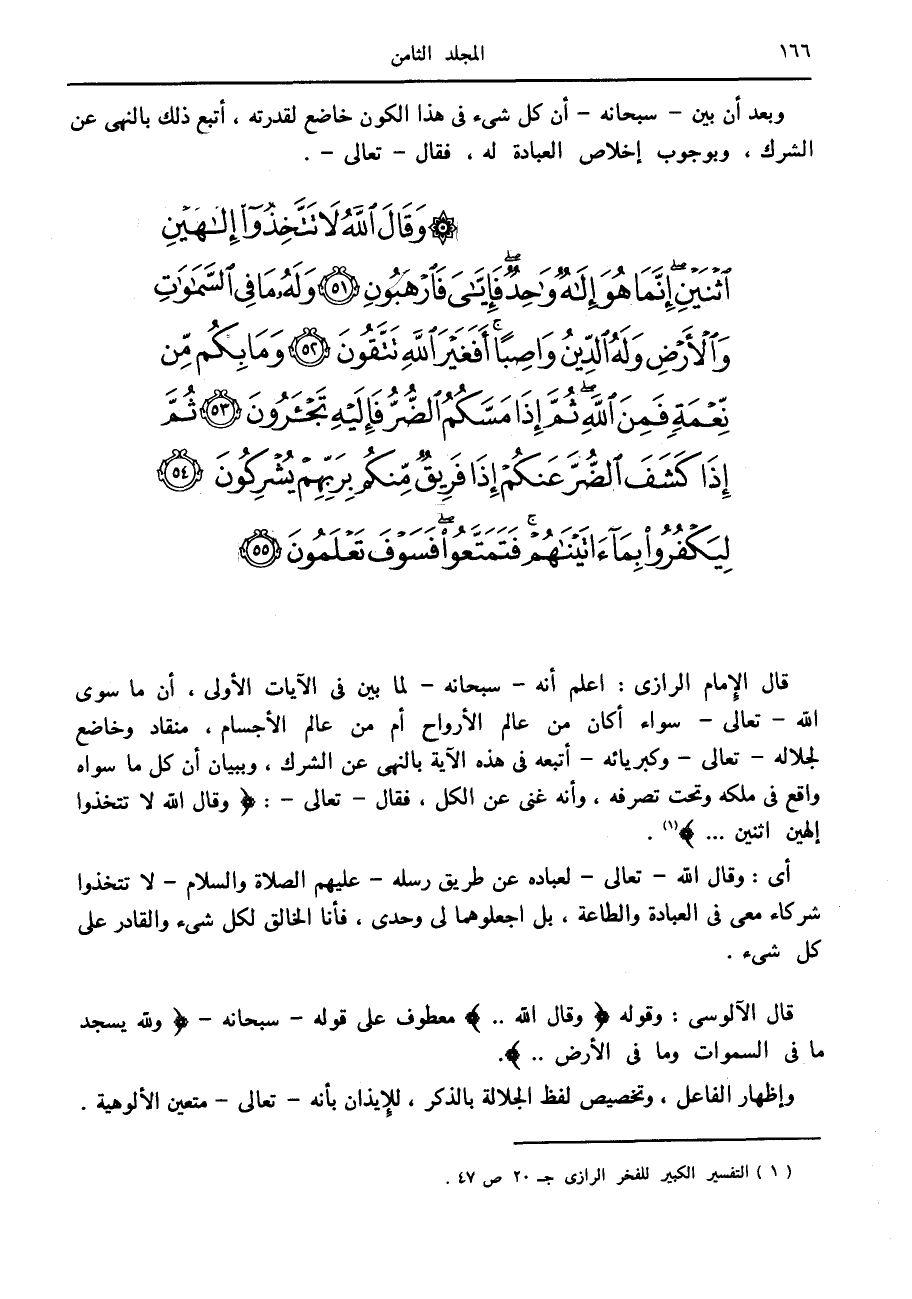 ١٦٦ المجلد الثامن
وبعد أن بين – سبحانه – أن كل شىء فى هذا الكون خاضع لقدرته ، أتبع ذلك بالنهى عن
الشرك ، وبوجوب إخلاص العبادة له ، فقال – تعالى – .
۞ وَقَالَ ٱللَّهُ لَا تَتَّخِذُوٓا۟ إِلَـٰهَيْنِ
ٱثْنَيْنِ ۖ إِنَّمَا هُوَ إِلَـٰهٌ وَٰحِدٌ ۖ فَإِيَّـٰىَ فَٱرْهَبُونِ ﴿٥١﴾ وَلَهُۥ مَا فِى ٱلسَّمَـٰوَٰتِ
وَٱلْأَرْضِ وَلَهُ ٱلدِّينُ وَاصِبًا ۚ أَفَغَيْرَ ٱللَّهِ تَتَّقُونَ ﴿٥٢﴾ وَمَا بِكُم مِّن
نِّعْمَةٍ فَمِنَ ٱللَّهِ ۖ ثُمَّ إِذَا مَسَّكُمُ ٱلضُّرُّ فَإِلَيْهِ تَجْـَٔرُونَ ﴿٥٣﴾ ثُمَّ
إِذَا كَشَفَ ٱلضُّرَّ عَنكُمْ إِذَا فَرِيقٌ مِّنكُم بِرَبِّهِمْ يُشْرِكُونَ ﴿٥٤﴾
لِيَكْفُرُوا۟ بِمَآ ءَاتَيْنَـٰهُمْ ۚ فَتَمَتَّعُوا۟ ۖ فَسَوْفَ تَعْلَمُونَ ﴿٥٥﴾
قال الإمام الرازى : اعلم أنه – سبحانه – لما بين فى الآيات الأولى ، أن ما سوى
الله – تعالى – سواء أكان من عالم الأرواح أم من عالم الأجسام ، منقاد وخاضع
لجلاله – تعالى – وكبريائه – أتبعه فى هذه الآية بالنهى عن الشرك ، وببيان أن كل ما سواه
واقع فى ملكه وتحت تصرفه ، وأنه غنى عن الكل ، فقال – تعالى – : ﴿ وقال الله لا تتخذوا
إلهين اثنين ... ﴾(١) .
أى : وقال الله – تعالى – لعباده عن طريق رسله – عليهم الصلاة والسلام – لا تتخذوا
شركاء معى فى العبادة والطاعة ، بل اجعلوهما لى وحدى ، فأنا الخالق لكل شىء والقادر على
كل شىء .
قال الآلوسى : وقوله ﴿ وقال الله .. ﴾ معطوف على قوله – سبحانه – ﴿ ولله يسجد
ما فى السموات وما فى الأرض .. ﴾.
وإظهار الفاعل ، وتخصيص لفظ الجلالة بالذكر ، للإيذان بأنه – تعالى – متعين الألوهية .
( ١ ) التفسير الكبير للفخر الرازى جـ ٢٠ ص ٤٧ .